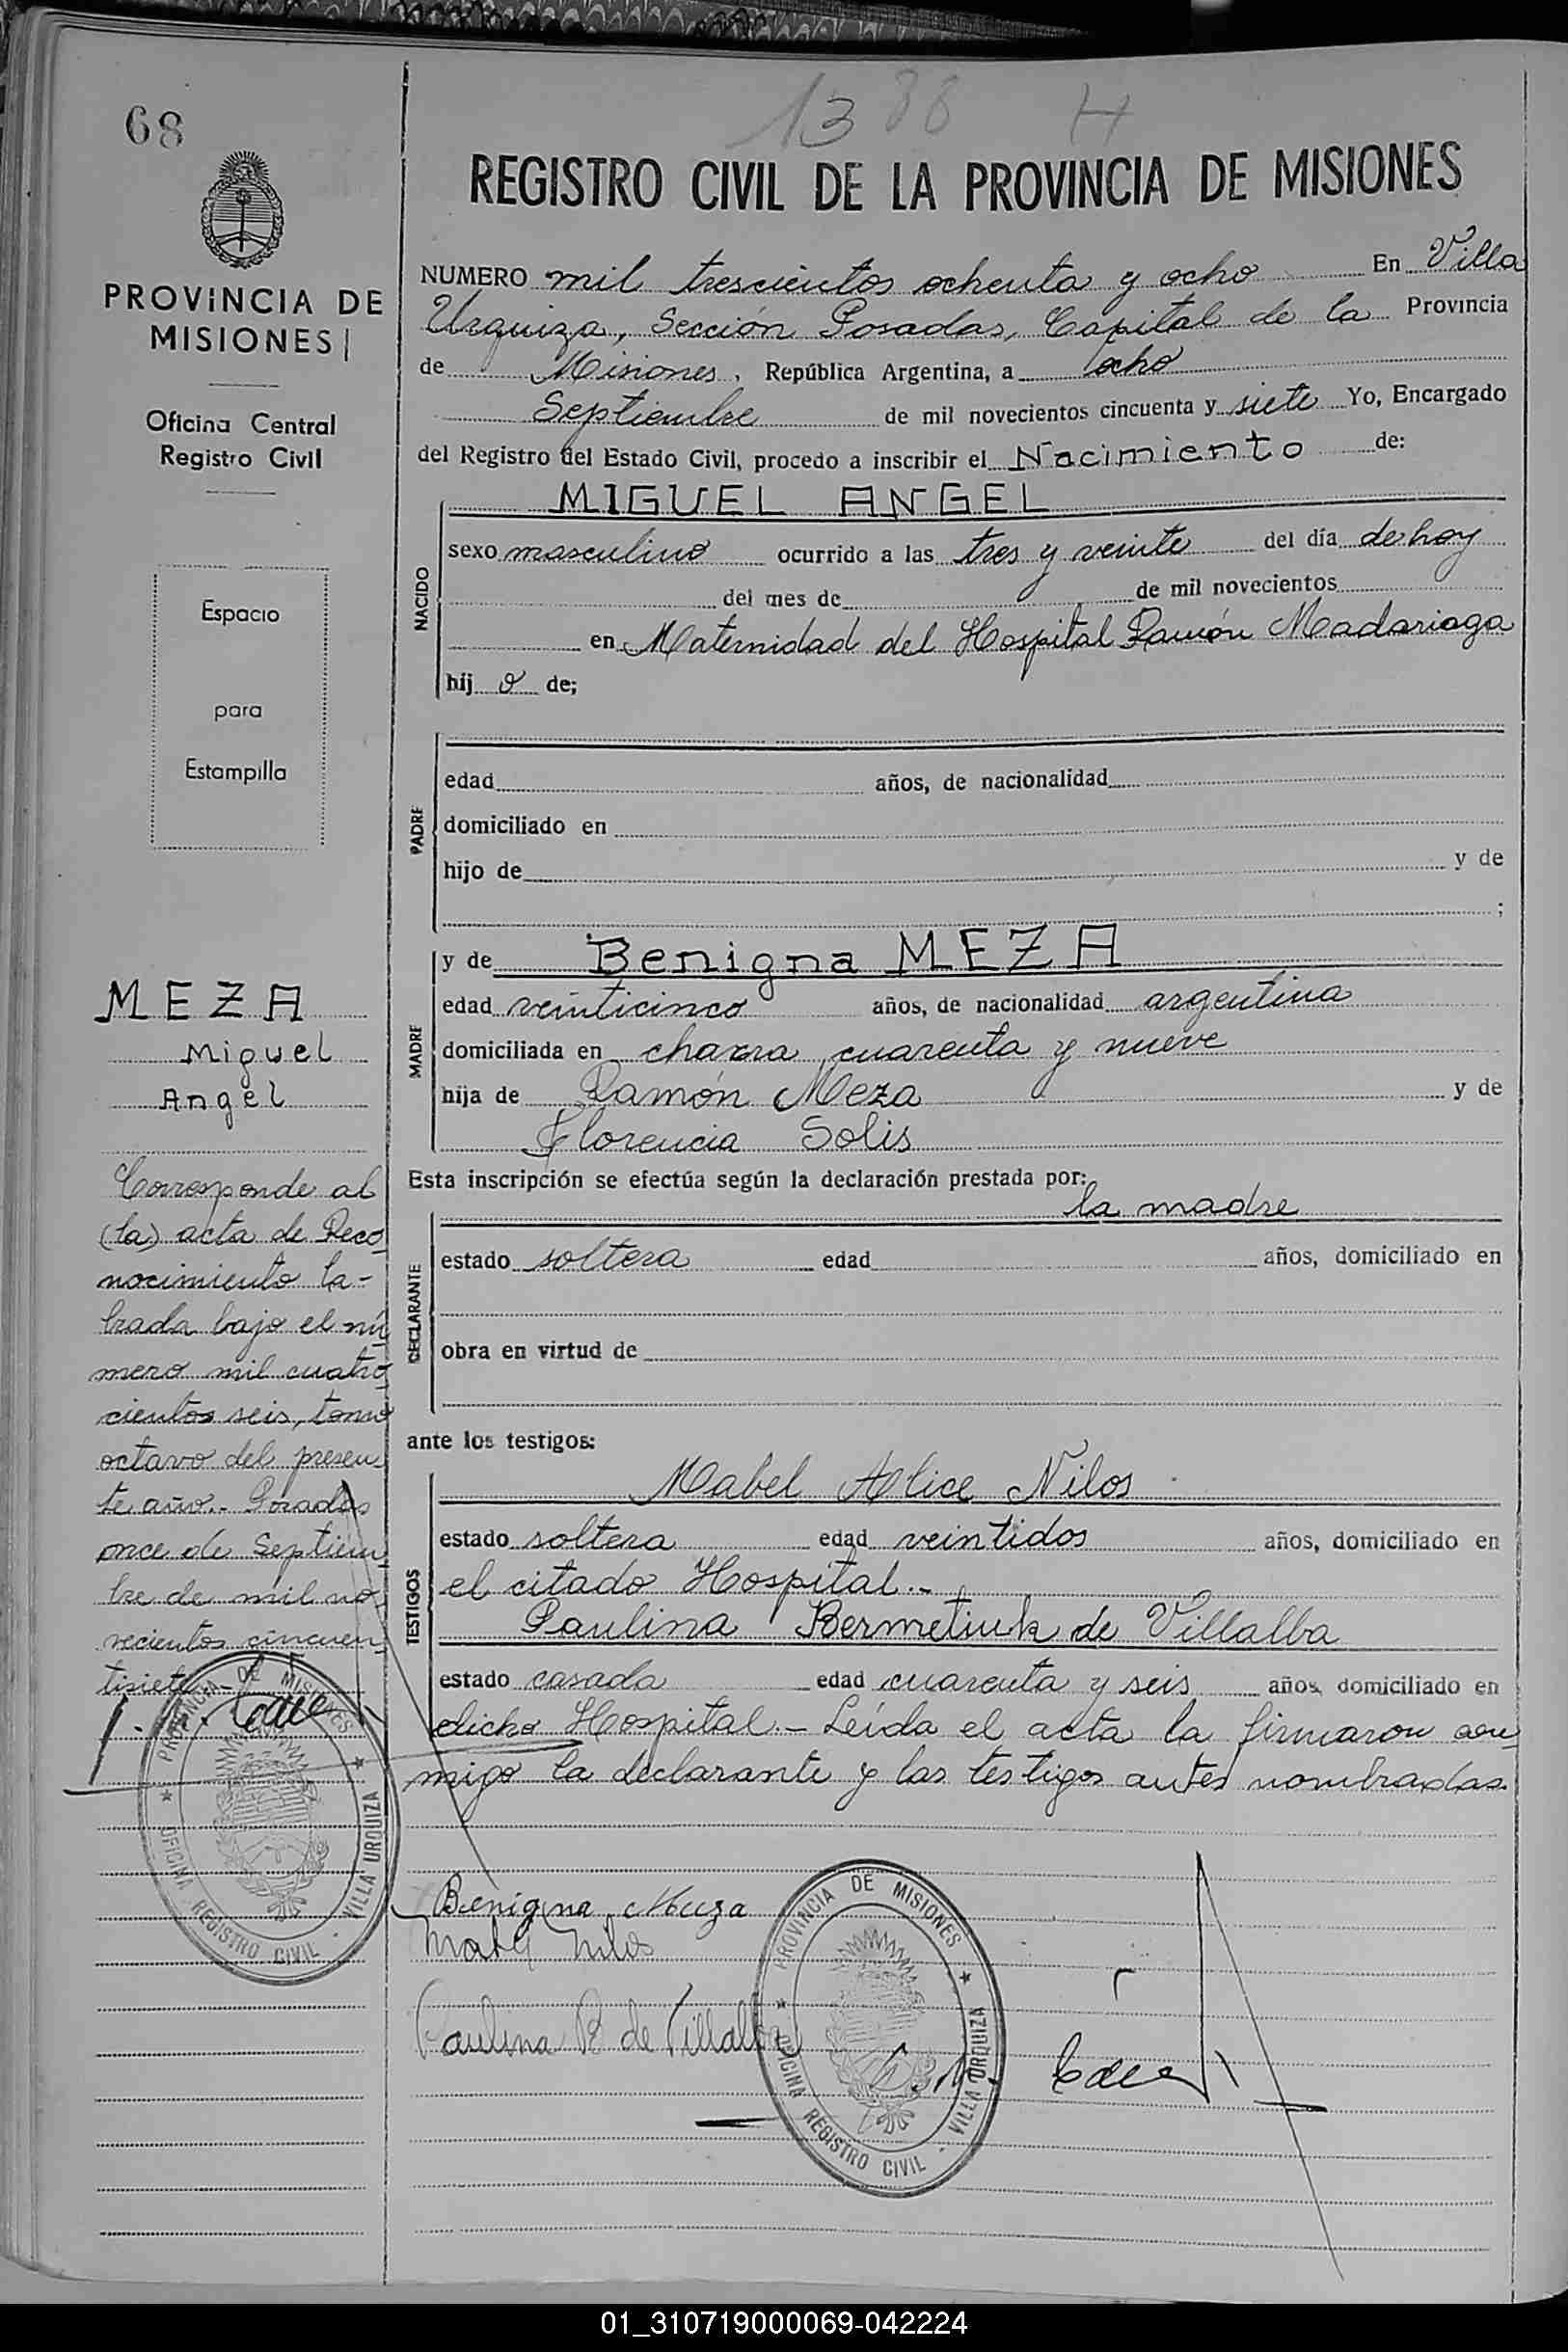 68
1388 H
PROVINCIA DE
MISIONES
Oficina Central
Registro Civil
Espacio
para
Estampilla
MEZA
Miguel
Angel
Corresponde al
(la) acta de Reco
nocimiento la-
brada bajo el nú
mero mil cuatro
cientos seis, tomo
octavo del presen
te año.- Posadas
once de Septiem
bre de mil no
vecientos cincuen
tisiete.-
PROVINCIA DE MISIONES
OFICINA REGISTRO CIVIL - VILLA URQUIZA
REGISTRO CIVIL DE LA PROVINCIA DE MISIONES
NUMERO mil trescientos ochenta y ocho En Villa
Urquiza, Sección Posadas, Capital de la Provincia
de Misiones, República Argentina, a ocho
Septiembre de mil novecientos cincuenta y siete Yo, Encargado
del Registro del Estado Civil, procedo a inscribir el Nacimiento de:
NACIDO
MIGUEL ANGEL
sexo masculino ocurrido a las tres y veinte del día de hoy
del mes de de mil novecientos
en Maternidad del Hospital Ramón Madariaga
hij o de;
PADRE
edad años, de nacionalidad
domiciliado en
hijo de y de
;
MADRE
y de Benigna MEZA
edad veinticinco años, de nacionalidad argentina
domiciliada en chacra cuarenta y nueve
hija de Ramón Meza y de
Florencia Solis
Esta inscripción se efectúa según la declaración prestada por:
DECLARANTE
la madre
estado soltera edad años, domiciliado en
obra en virtud de
ante los testigos:
TESTIGOS
Mabel Alice Nilos
estado soltera edad veintidos años, domiciliado en
el citado Hospital.-
Paulina Bermetiuk de Villalba
estado casada edad cuarenta y seis años domiciliado en
dicho Hospital.- Leída el acta la firmaron con
migo la declarante y las testigos antes nombradas.
Benigna Meza
Nilos
Paulina B de Villalba
PROVINCIA DE MISIONES
OFICINA REGISTRO CIVIL - VILLA URQUIZA
01_310719000069-042224